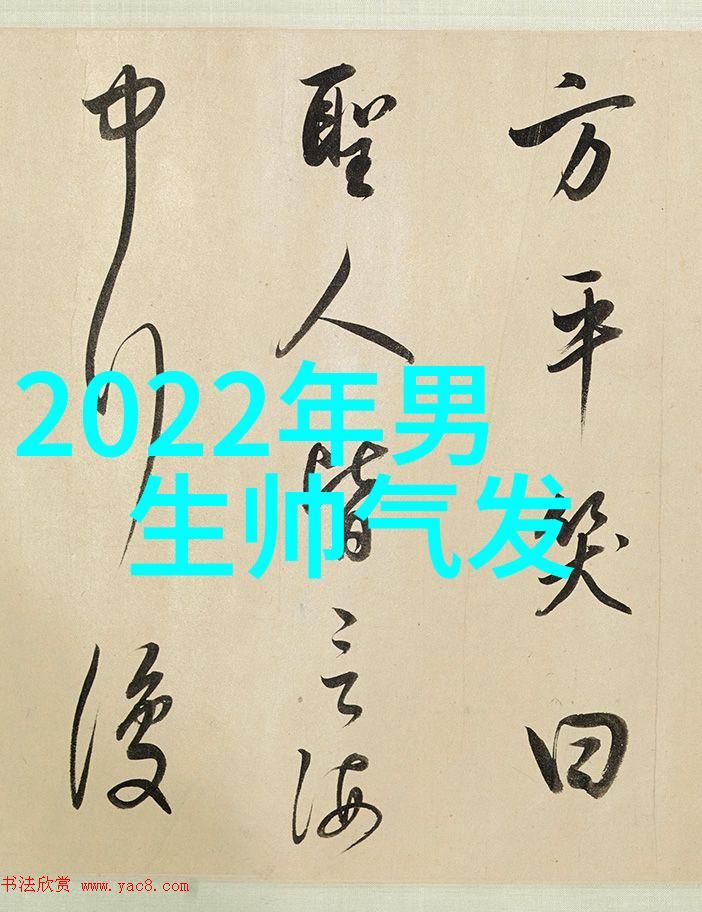 方平笑曰
聖人皆言海
中行復
2022年男
生帅气发
书法欣赏 www.yac8.com